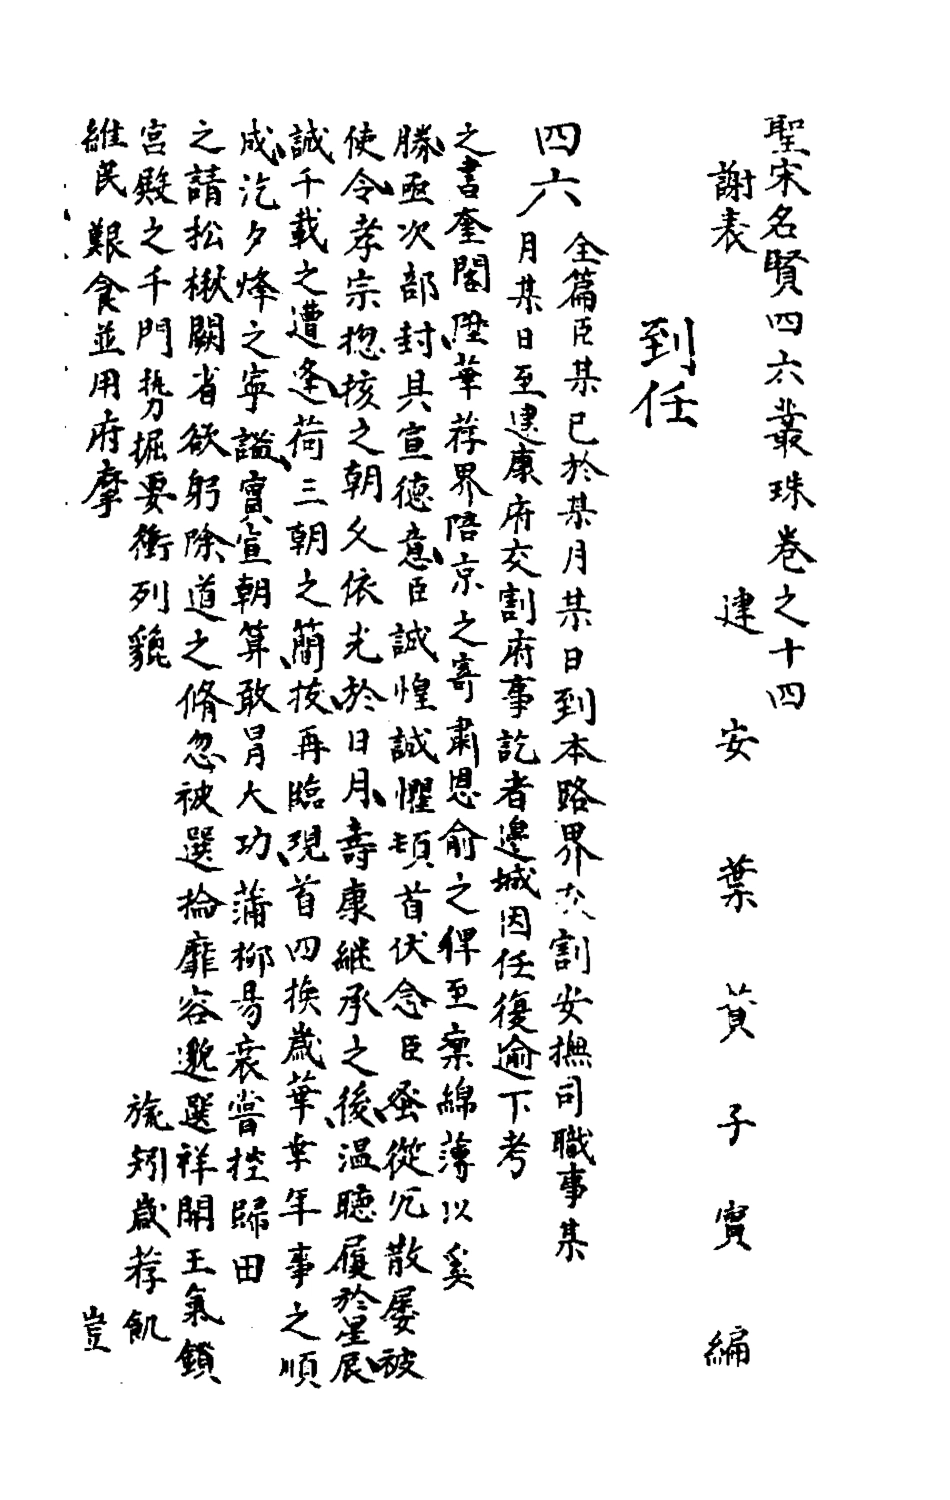 聖宋名賢四六叢珠卷之十四
建安葉蕡子實編
謝表
到任
四六
全篇臣某已於某月某日到本路界交割安撫司職事某
月某日至建康府交割府事訖者邊城因任復逾下考
之書奎閣陞華荐界陪京之寄肅恩俞之俾至稟綿薄以奚
勝亟次部封具宣德意臣誠惶誠懼頓首伏念臣蚤從冗散屡被
使令孝宗揔核之朝久依光於日月壽康継承之後温聴履於星辰
誠千載之遭逢荷三朝之簡抜再臨現首四換歲華幸年事之順
成汔夕烽之寧謐實宣朝算敢冒大功蒲柳昜衰甞控歸田
之請松楸闕省欲躬除道之脩忽被選掄靡容邈選祥開王氣鎖
宮殿之千門勢掘要衝列貔 旒矧歲荐飢
維民艱食並用府摩 豈